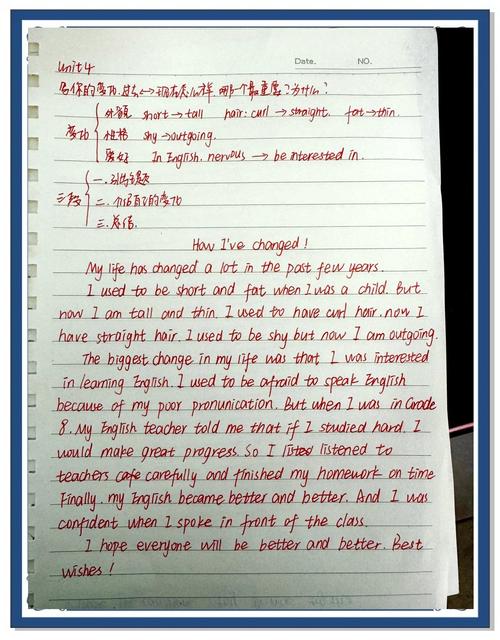 Unit 4
Date. NO.
写你的变功,过去↔现在怎么样,哪一个最重要?为什么?
变功 外貌 short → tall hair: curl → straight. fat → thin.
性格 shy → outgoing.
爱好 In English. nervous → be interested in.
三段 一. 引出主题
二. 介绍自己的变功
三. 总结.
How I've changed!
My life has changed a lot in the past few years.
I used to be short and fat when I was a child. But
now I am tall and thin. I used to have curl hair. now I
have straight hair. I used to be shy but now I am outgoing.
The biggest change in my life was that I was interested
in learning English. I used to be afraid to speak English
because of my poor pronunication. But when I was in Grade
8. My English teacher told me that if I studied hard. I
would make great progress. So I listened to
teachers carefully and finished my homework on time
Finally. my English became better and better. And I was
confident when I spoke in front of the class.
I hope everyone will be better and better. Best
wishes!